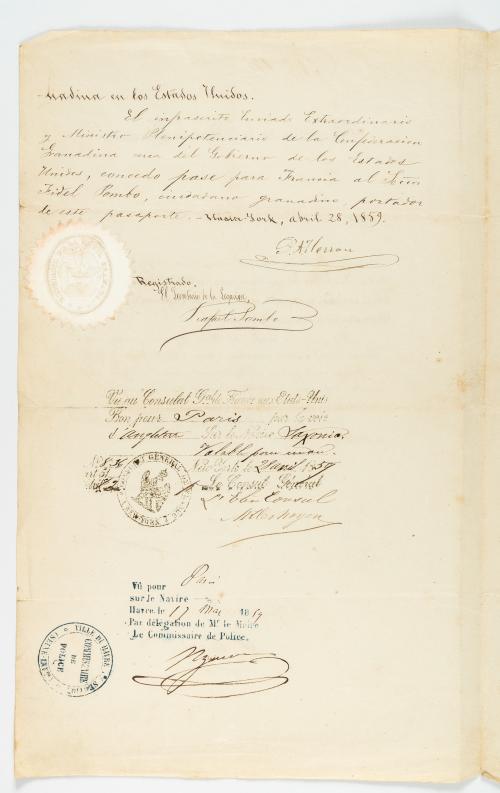 nadina en los Estados Unidos.
El infrascrito Enviado Extraordinario
y Ministro Plenipotenciario de la Confederacion
Granadina cerca del Gobierno de los Estados
Unidos, concedo pase para Francia al Señor
Fidel Pombo, ciudadano granadino, portador
de este pasaporte. - Nueva-York, abril 28, 1859.
P. A. Herran
Registrado.
El Secretario de la Legacion,
Rafael Pombo
Vu au Consulat Gral de France aux Etats-Unis
Bon pour Paris par la voie
d'Angleterre Sur le Navire Saxonia
Valable pour un an.
New York le 28 avril 1859
Le Consul Général
Vû pour Paris
sur le Navire
Havre, le 17 Mai 1859
Par délégation de Mr. le Maire
Le Commissaire de Police,
VILLE DU HAVRE
COMMISSAIRE
DE
POLICE